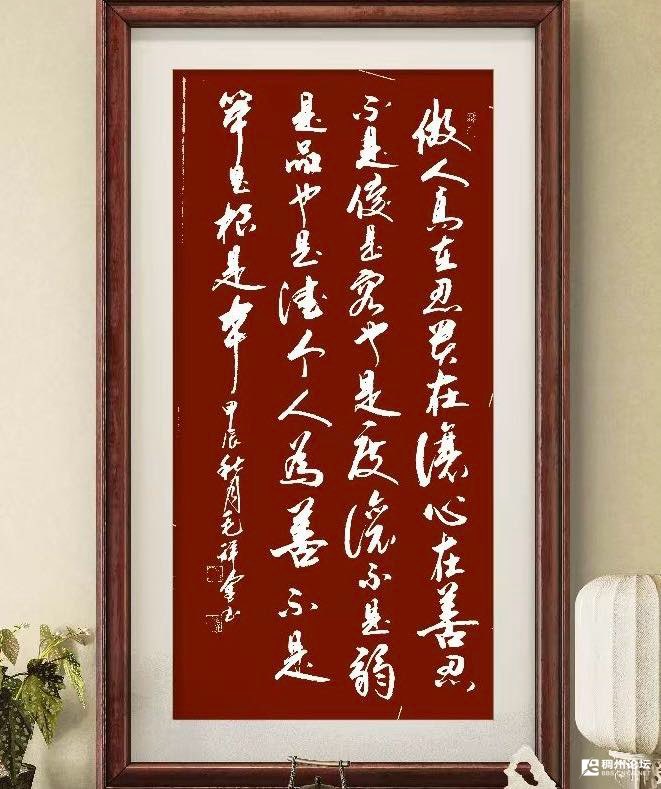 做人高在忍贵在讓心在善忍
不是傻是容也是度讓不是弱
是品也是德个人為善不是
笨是根是本
甲辰秋月毛祥金书
稠州论坛
BBS.CN0579.NET